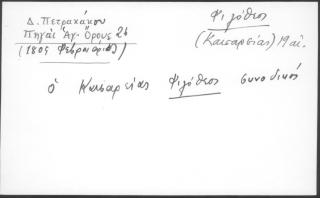 Δ. Πετρακάκου
Πηγαὶ Ἁγ. Ὄρους 26
(1805 Φεβρουάριος)
Φιλόθεος
(Καισαρείας) 19 αἰ.
ὁ Καισαρείας Φιλόθεος συνοδικός